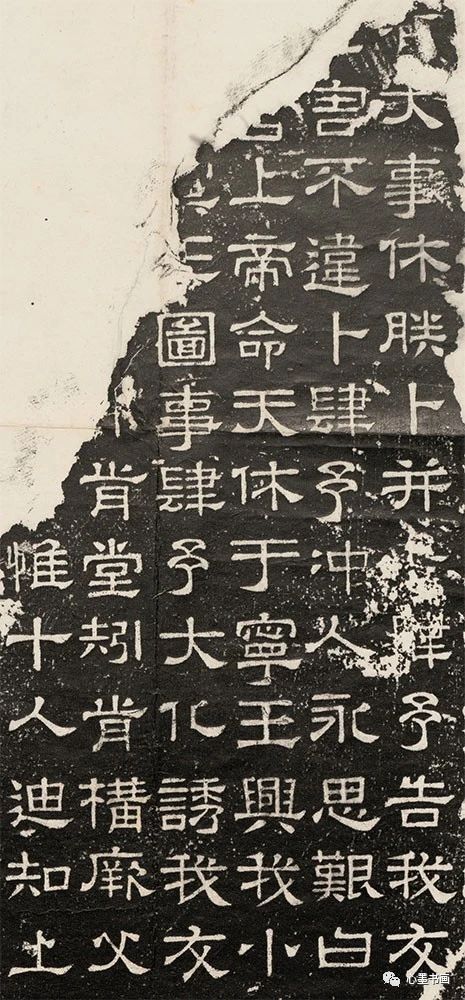 大事休朕卜并肆予告我友
害不違卜肆予沖人永思艱曰
上帝命天休于寧王興我小
圖事肆予大化誘我友
肯堂矧肯構厥父
惟十人迪知上
心墨书画